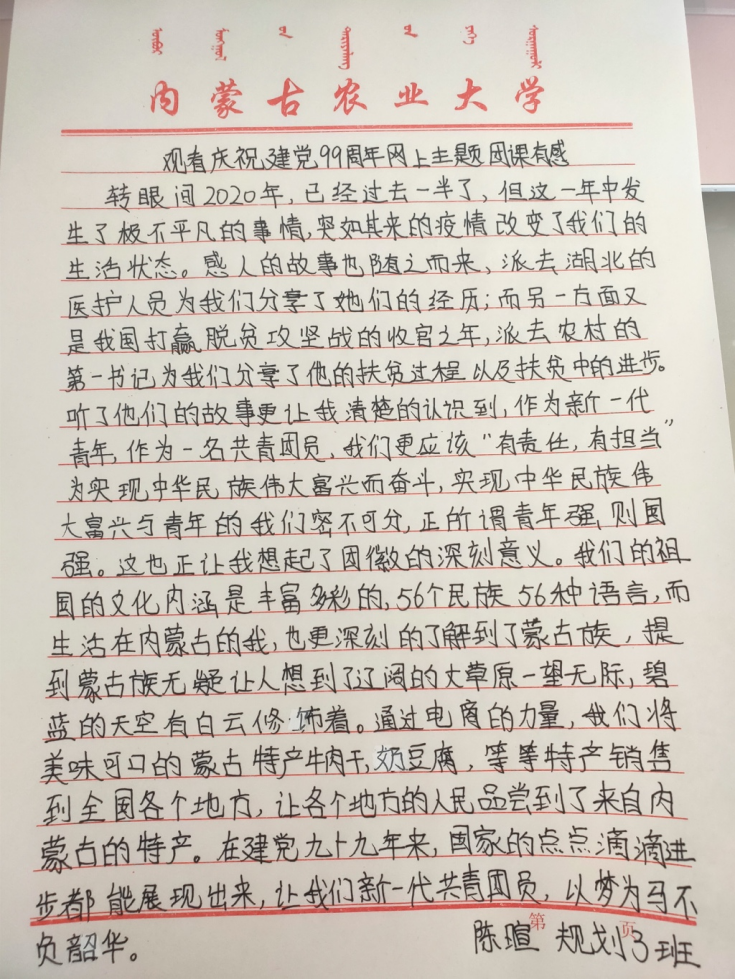 内蒙古农业大学
观看庆祝建党99周年网上主题团课有感
转眼间2020年，已经过去一半了，但这一年中发
生了极不平凡的事情，突如其来的疫情改变了我们的
生活状态。感人的故事也随之而来、派去湖北的
医护人员为我们分享了她们的经历；而另一方面又
是我国打赢脱贫攻坚战的收官之年，派去农村的
第一书记为我们分享了他的扶贫过程以及扶贫中的进步。
听了他们的故事更让我清楚的认识到，作为新一代
青年，作为一名共青团员，我们更应该“有责任，有担当”
为实现中华民族伟大富兴而奋斗，实现中华民族伟
大富兴与青年的我们密不可分，正所谓青年强，则国
强。这也正让我想起了团徽的深刻意义。我们的祖
国的文化内涵是丰富多彩的，56个民族56种语言，而
生活在内蒙古的我，也更深刻的了解到了蒙古族，提
到蒙古族无疑让人想到了辽阔的大草原一望无际，碧
蓝的天空有白云修饰着。通过电商的力量，我们将
美味可口的蒙古特产牛肉干，奶豆腐，等等特产销售
到全国各个地方，让各个地方的人民品尝到了来自内
蒙古的特产。在建党九十九年来，国家的点点滴滴进
步都能展现出来，让我们新一代共青团员，以梦为马不
负韶华。
陈瑄 规划3班
第 页